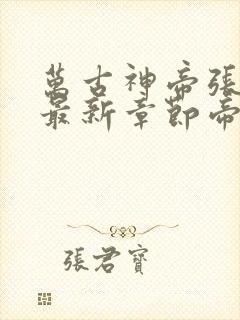 萬古神帝張
最新章節帝
張君寶